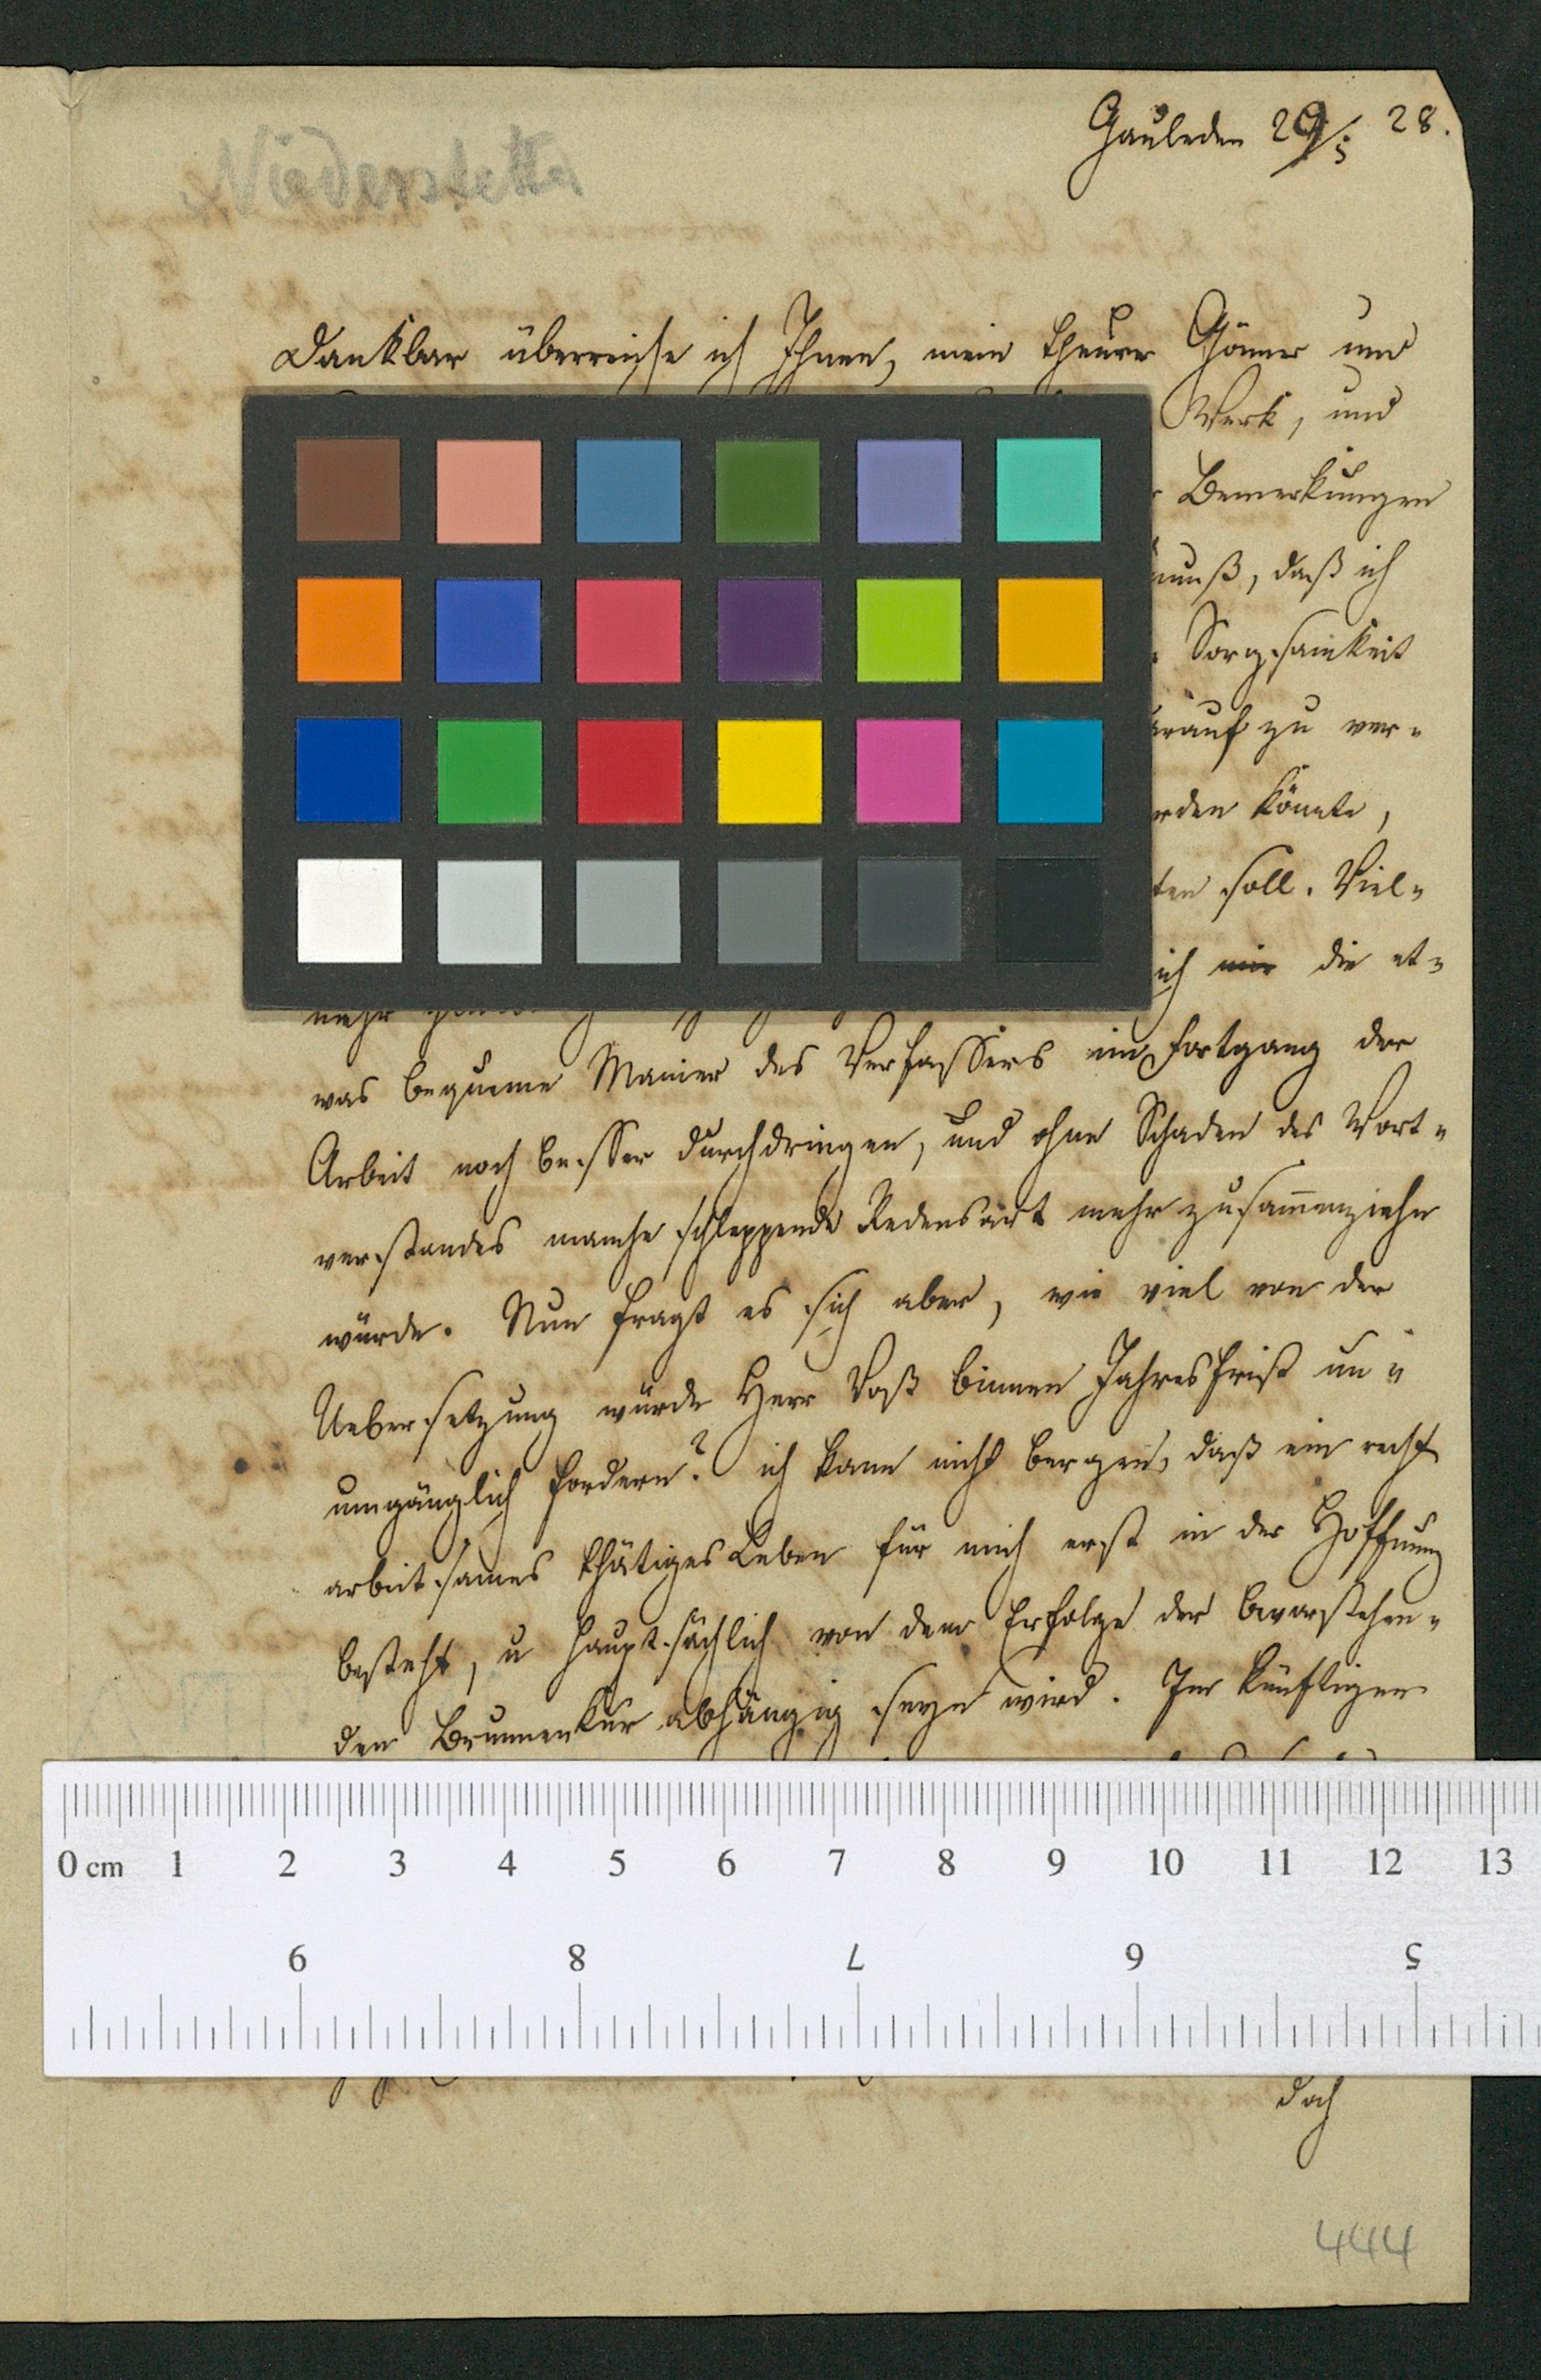 Gauleden 29/5 28.
Niederstetter
Dankbar überreiche ich Ihnen, mein theurer Gönner und
Werk, und
Bemerkungen
muß, daß ich
Sorgsamkeit
zu ver-
könnte,
soll. Viel-
ich mir die et-
mehr
was bequeme Manier des Verfassers im Fortgang der
Arbeit noch besser durchdringen, und ohne Schaden des Wort-
verstandes manche schleppende Redensart mehr zusam̅enziehn
würde. Nun fragt es sich aber, wie viel von der
Uebersetzung würde Herr Voß binnen Jahresfrist un-
umgänglich fordern? ich kann nicht bergen, daß ein recht
arbeitsames thätiges Leben für mich erst in der Hoffnung
besteht, u hauptsächlich von dem Erfolge der bevorstehen-
den Brunnenkur abhängig seyn wird. Im künftigen
0 cm 1 2 3 4 5 6 7 8 9 10 11 12 13
9 8 7 6 5
doch
444